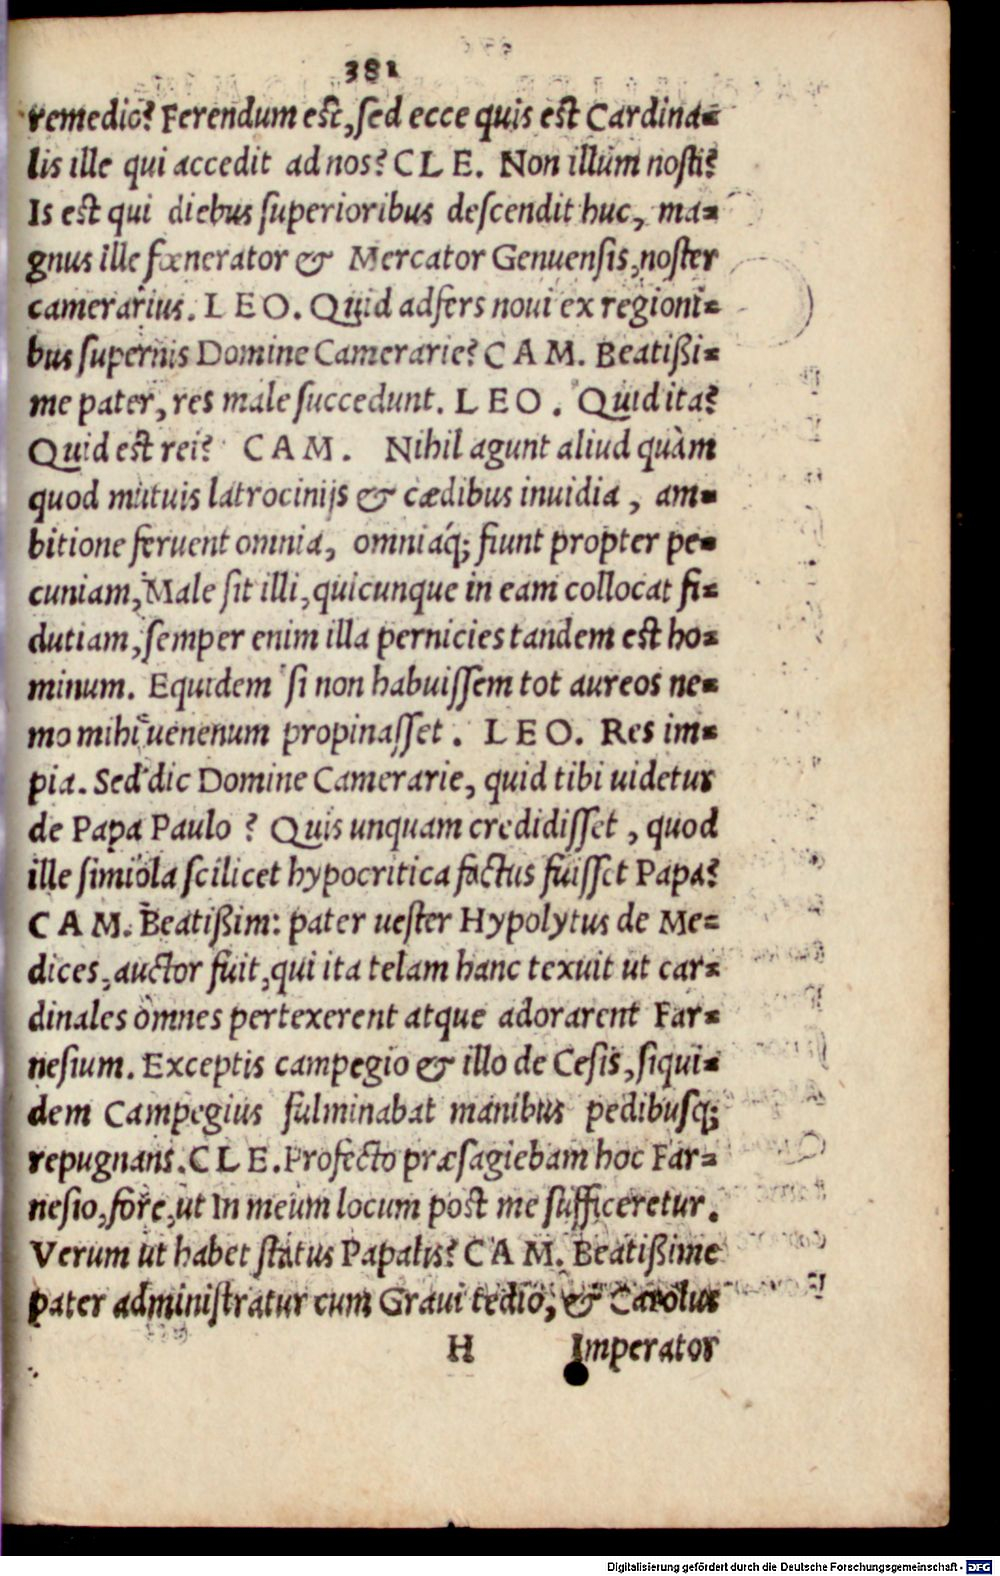 381
remedio? Ferendum est, sed ecce quis est Cardina=
lis ille qui accedit ad nos? CLE. Non illum nosti?
Is est qui diebus superioribus descendit huc, ma=
gnus ille fœnerator & Mercator Genuensis, noster
camerarius. LEO. Quid adfers noui ex regioni=
bus supernis Domine Camerarie? CAM. Beatißi=
me pater, res male succedunt. LEO. Quid ita?
Quid est rei? CAM. Nihil agunt aliud quàm
quod mutuis latrocinijs & cædibus inuidia, am=
bitione feruent omnia, omniáq; fiunt propter pe=
cuniam, Male sit illi, quicunque in eam collocat fi=
dutiam, semper enim illa pernicies tandem est ho=
minum. Equidem si non habuissem tot aureos ne=
mo mihi uenenum propinasset. LEO. Res im=
pia. Sed dic Domine Camerarie, quid tibi uidetur
de Papa Paulo? Quis unquam credidisset, quod
ille simiola scilicet hypocritica factus fuisset Papa?
CAM. Beatißim: pater uester Hypolytus de Me=
dices, auctor fuit, qui ita telam hanc texuit ut car=
dinales omnes pertexerent atque adorarent Far=
nesium. Exceptis campegio & illo de Cesis, siqui=
dem Campegius fulminabat manibus pedibusq;
repugnans. CLE. Profecto præsagiebam hoc Far=
nesio, fore, ut In meum locum post me sufficeretur.
Verum ut habet status Papalis? CAM. Beatißime
pater administratur cum Graui tedio, & Carolus
H Imperator
Digitalisierung gefördert durch die Deutsche Forschungsgemeinschaft - DFG